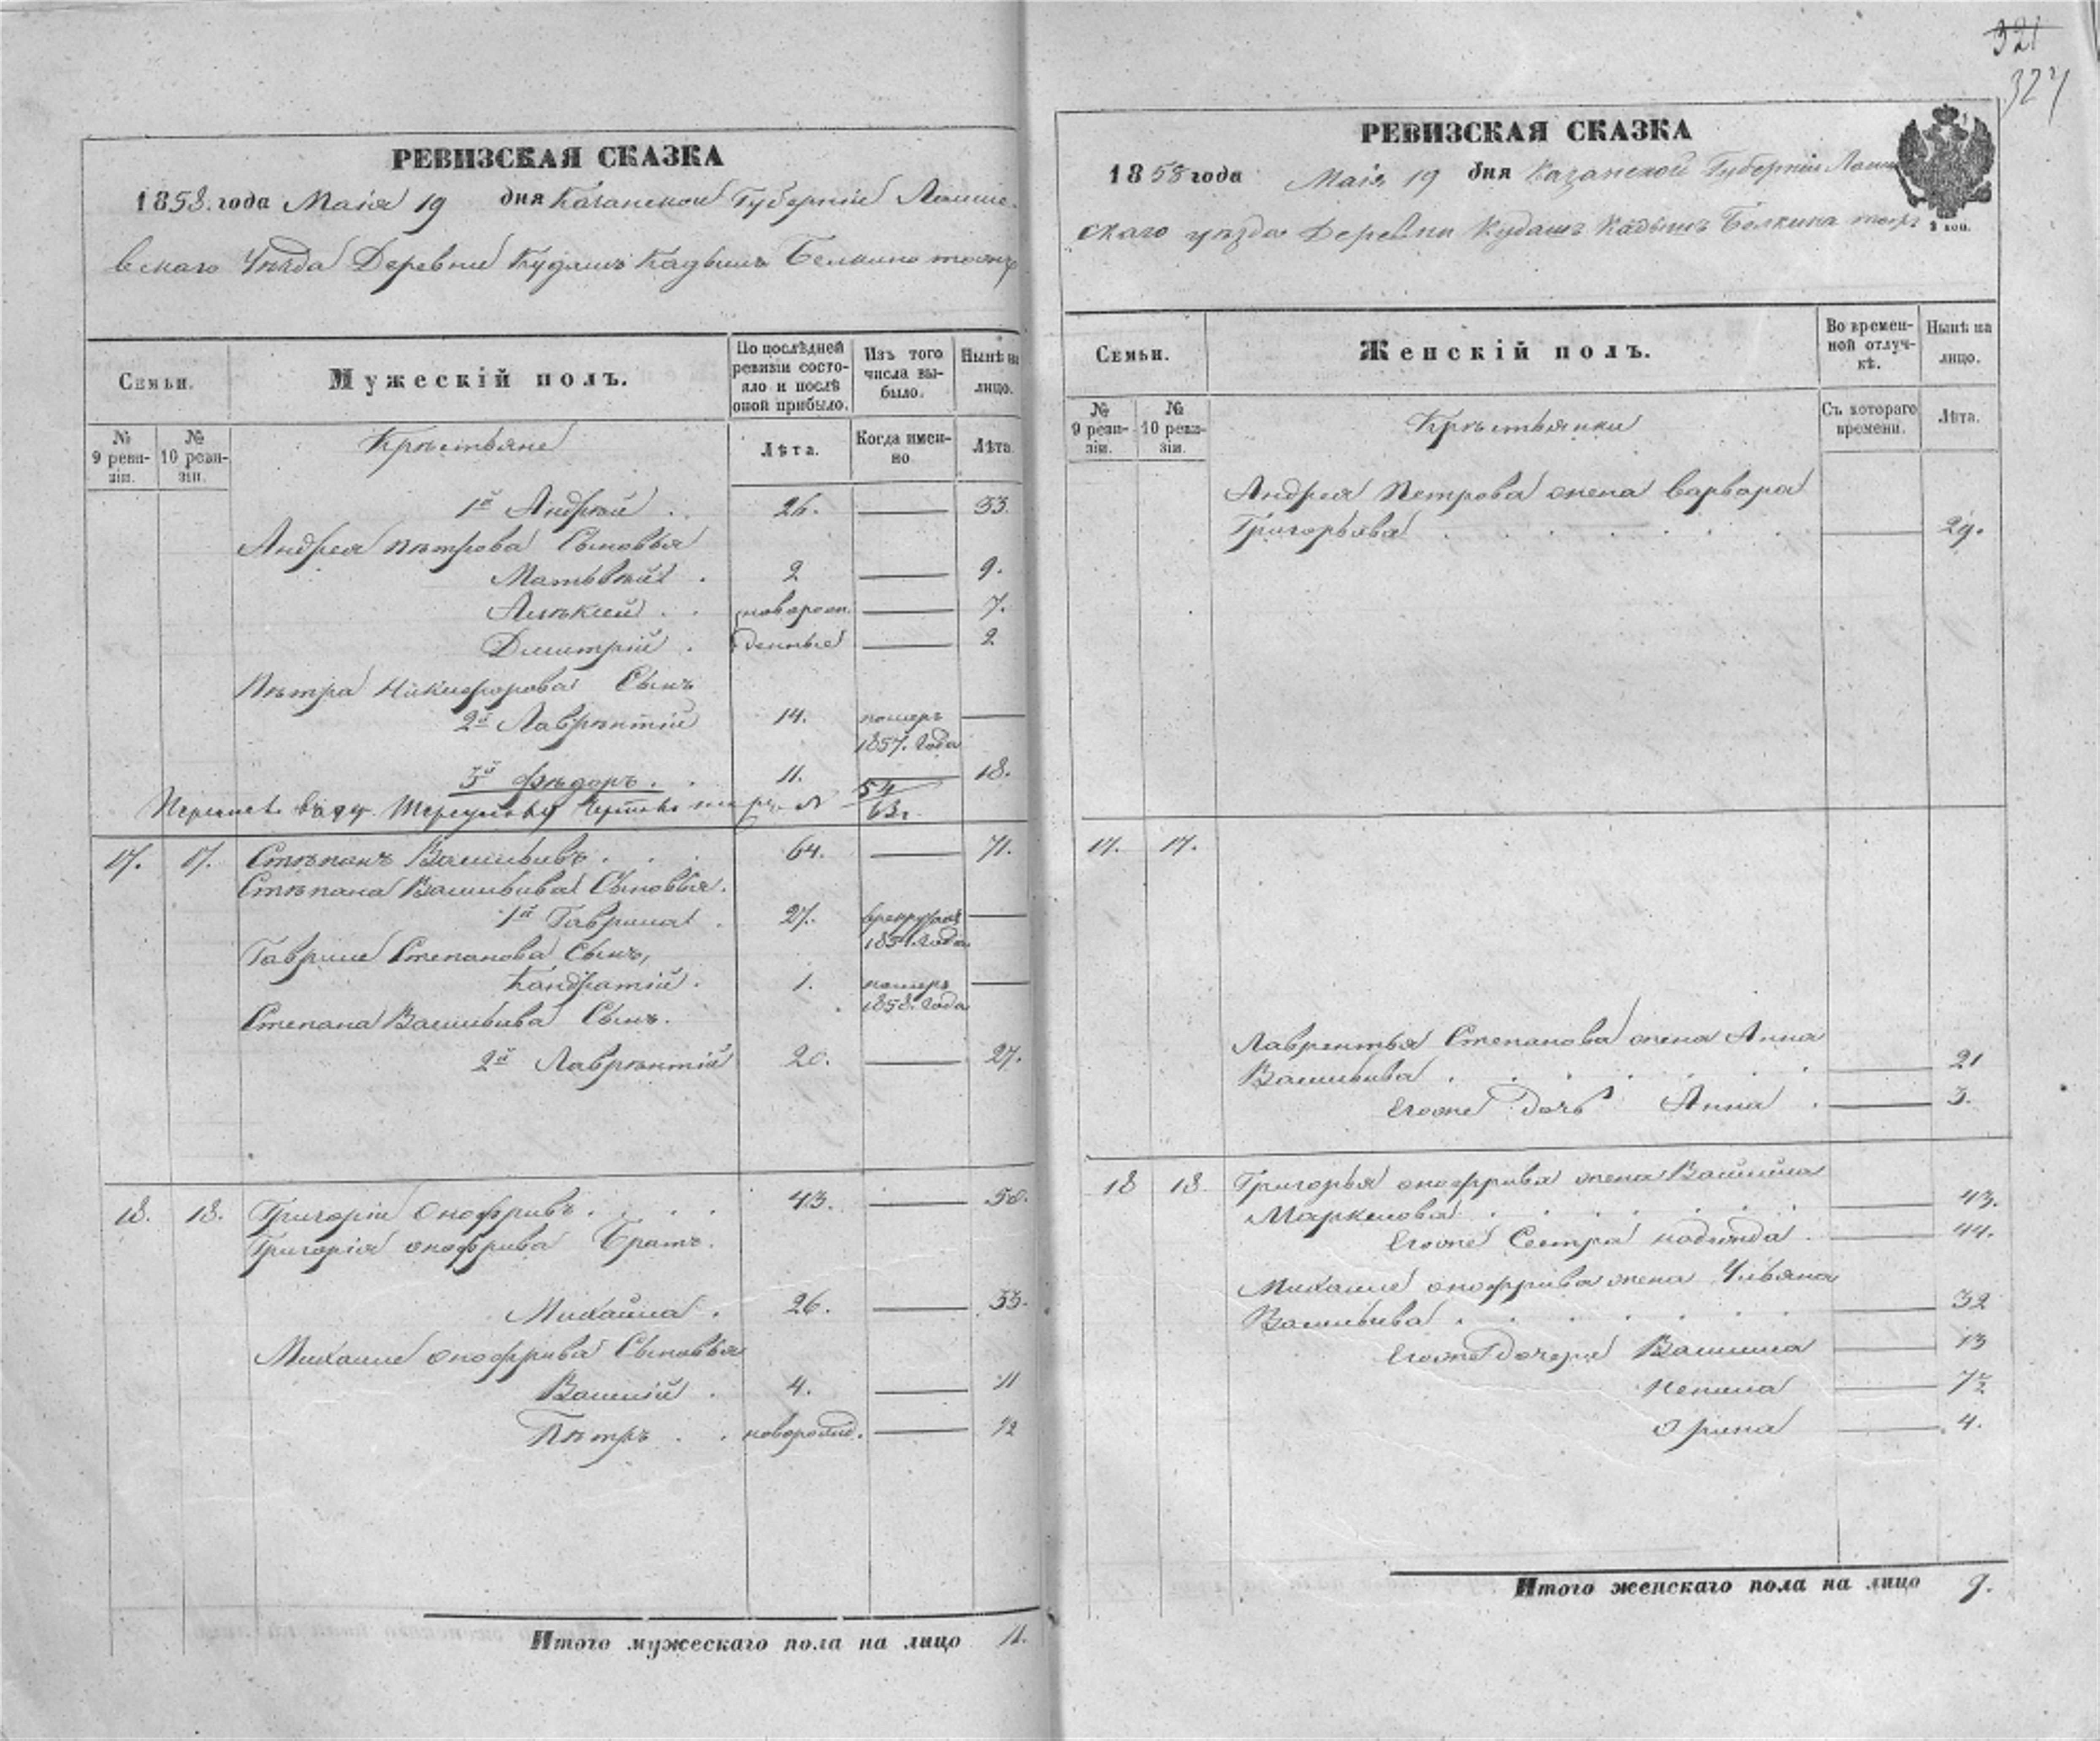 321
324
РЕВИЗСКАЯ СКАЗКА
1858. года Маія 19 дня Казанской Губерніи Лаише-
вскаго Уѣзда Деревни Кудашъ Кадышъ Белкино тожъ
Семьи.
Мужескій полъ.
По послѣдней ревизіи состо-
яло и послѣ оной прибыло.
Изъ того числа вы-
было.
Нынѣ на лицо.
№ 9 реви-
зіи.
№ 10 реви-
зіи.
Крѣстьяне
Лѣта.
Когда имен-
но
Лѣта.
1й Андрѣй . . 26. 33.
Андрея Пѣтрова Сыновья
Матьвѣй . 2 9.
Алѣксей . . новорож 7.
Дмитрій . денные 2
Пѣтра Никифорова Сынъ
2й Лаврѣнтій 14. померъ
1857. Года
3й Фѣдоръ . . 11. 18.
54
63
17. 17. Стѣпанъ Васильивъ . . . 64. 71.
Стѣпана Васильива Сыновья.
1й Гаврила . 27. врекруты
185 Года
Гаврилы Степанова Сынъ,
Кандратій . 1. померъ
1858. Года
Степана Васильива Сынъ.
2й Лаврѣнтій 20. 27.
18. 18. Григорій Онофривъ . . . . 43. 50.
Григорія Онофрива Братъ.
Михайла . 26. 33.
Михаилы Онофрива Сыновья
Василій . 4. 11
Пѣтръ . . новорожд. 1/2
Итого мужескаго пола на лицо 11.
РЕВИЗСКАЯ СКАЗКА
1858 года Маія 19 дня Казанской Губерніи Лаише
скаго уѣзда Деревни Кудашъ Кадышъ Белкина тожъ
Семьи.
Женскій полъ.
Во времен-
ной отлуч-
кѣ.
Нынѣ на лицо.
№ 9 реви-
зіи.
№ 10 реви-
зіи.
Крѣстьянки
Съ котораго времени.
Лѣта.
Андрея Петрова жена Варвара
Григорьева 29.
17. 17.
Лаврентья Степанова жена Анна
Васильива . . . . . . . 21
Егоже дочь Анна . 3.
18 18 Григорья онофрива жена Василиса
Маркелова . . . . . . . 43.
Егоже Сестра надежда . 44.
Михаилы онофрива жена Ульяна
Васильева . . . . . . 32
Егоже дочери Василиса 13
Ненила 7 1/2
Орина 4.
Итого женскаго пола на лицо 9.